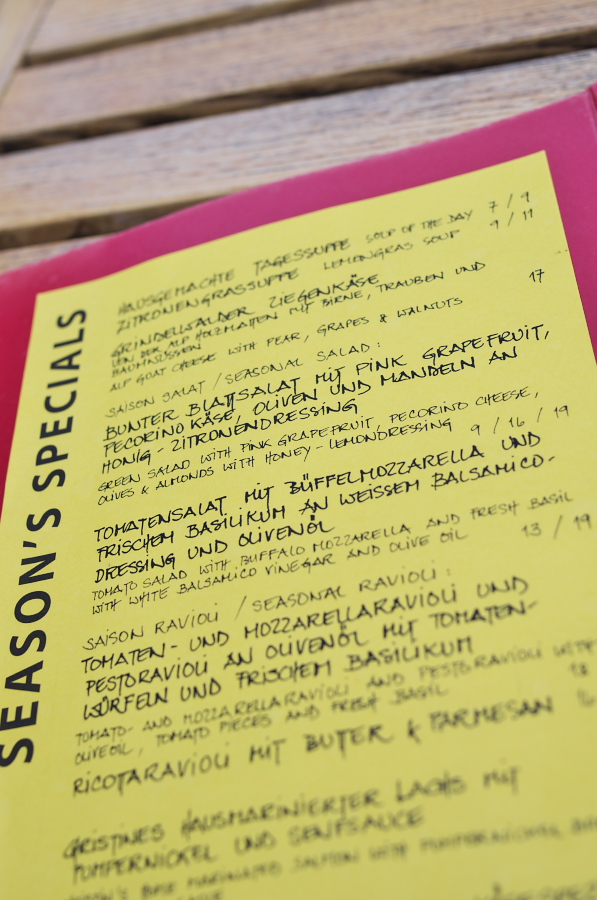 SEASON'S SPECIALS
HAUSGEMACHTE TAGESSUPPE SOUP OF THE DAY 7 / 9
ZITRONENGRASSUPPE LEMONGRAS SOUP 9 / 11
GRINDELWALDER ZIEGENKÄSE
VON DER ALP HOLZMATTEN MIT BIRNE, TRAUBEN UND 17
BAUMNÜSSEN
ALP GOAT CHEESE WITH PEAR, GRAPES & WALNUTS
SAISON SALAT / SEASONAL SALAD:
BUNTER BLATTSALAT MIT PINK GRAPEFRUIT,
PECORINO KÄSE, OLIVEN UND MANDELN AN
HONIG - ZITRONENDRESSING
GREEN SALAD WITH PINK GRAPEFRUIT, PECORINO CHEESE,
OLIVES & ALMONDS WITH HONEY - LEMONDRESSING 9 / 16 / 19
TOMATENSALAT MIT BÜFFELMOZZARELLA UND
FRISCHEM BASILIKUM AN WEISSEM BALSAMICO-
DRESSING UND OLIVENÖL
TOMATO SALAD WITH BUFFALO MOZZARELLA AND FRESH BASIL
WITH WHITE BALSAMICO VINEGAR AND OLIVE OIL 13 / 19
SAISON RAVIOLI / SEASONAL RAVIOLI:
TOMATEN- UND MOZZARELLARAVIOLI UND
PESTORAVIOLI AN OLIVENÖL MIT TOMATEN-
WÜRFELN UND FRISCHEM BASILIKUM
TOMATO- AND MOZZARELLARAVIOLI AND PESTORAVIOLI WITH
OLIVEOIL, TOMATO PIECES AND FRESH BASIL
RICOTARAVIOLI MIT BUTER & PARMESAN
HAUSMARINIERTER LACHS MIT
PUMPERNICKEL UND SENFSAUCE
MARINATED SALMON WITH PUMPERNICKEL